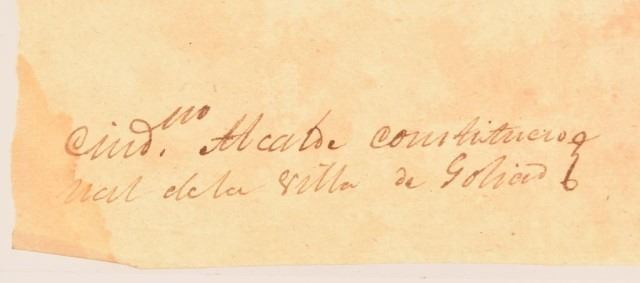 Ciud.no Alcalde constitucio
nal de la Villa de Goliad